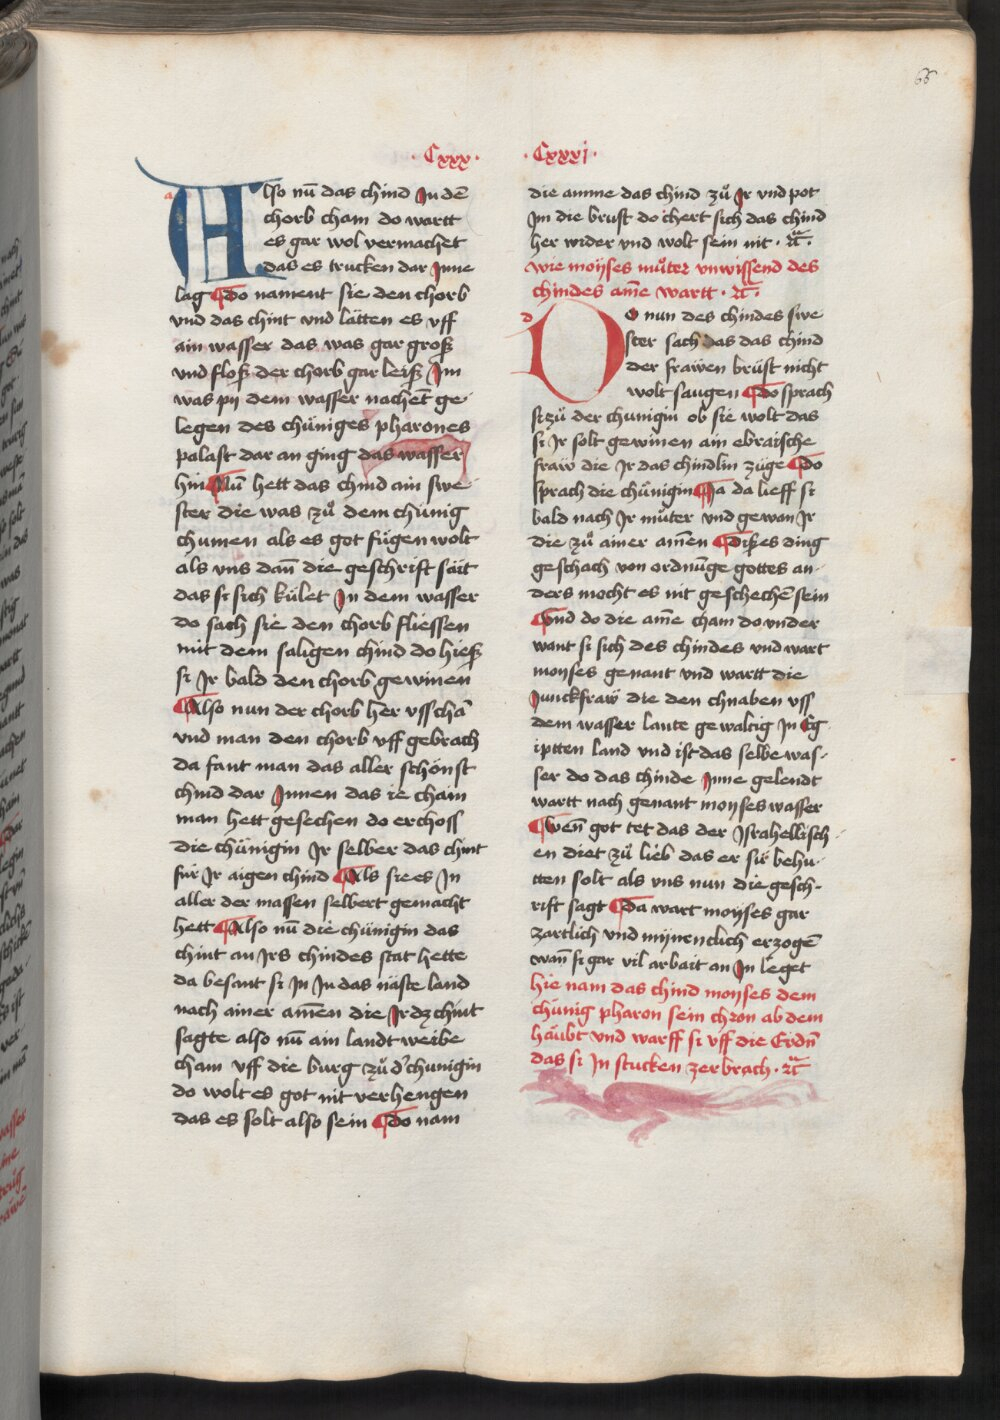 66
· Cxxx ·
Also nu̅ das chind In de̅
chorb cham do wartt
es gar wol vermachet
das es trucken dar Inne
lag Do nament sie den chorb
vnd das chint vnd lătten es vff
ain wasser das was gar groß
vnd floß der chorb gar leiß Im
was pÿ dem wasser nachet ge-
legen des chüniges pharones
palast dar an ging das wasser
hin Nu̅ hett das chind ain swe-
ster die was zů dem chünig
chumen als es got fügen wolt
als vns dan̅ die geschrift sait
das si sich kület In dem wasser
do sach sie den chorb fliessen
mit dem saligen chind do hieß
si Ir bald den chorb gewinen
Also nun der chorb her vsscha̅
vnd man den chorb vff gebrach
da fant man das aller schönst
chind dar Innen das ie cham
man hett gesechen do erchoss
die chünigin Ir selber das chint
für Ir aigen chind Als sie es In
aller der massen selbert gemacht
hett Also nu̅ die chünigin das
chint an Irs chindes stat hette
da besant si In In das näste land
nach ainer am̅en die Ir dz chint
sagte also nu̅ ain landt weibe
cham vff die burg zů d' chunigin
do wolt es got nit verhengen
das es solt also sein Do nam
· Cxxxj ·
die amme das chind zů Ir vnd pot
Im die brust do chert sich das chind
her wider vnd wolt sein nit · ꝛc̃ ·
wie moÿses můter vnwissend des
chindes am̅e wartt · ꝛc̃ ·
Do nun des chindes swe
ster sach das das chind
der frawen brüst nicht
wolt saugen Do sprach
si zů der chunigin ob sie wolt das
si Ir solt gewinen ain ebraische
fraw die Ir das chindlin züge Do
sprach die chünigin Ja da lieff si
bald nach Ir můter vnd gewan Ir
die zů ainer am̅en Dißes ding
geschach von ordnu̅ge gottes an-
ders mocht es nit gescheche̅ sein
Vnd do die am̅e cham do vnder
want si sich des chindes vnd wart
moyses genant vnd wartt die
Junckfraw die den chnaben vss
dem wasser laute gewaltig In Eg
iptten land vnd ist das selbe was-
ser do das chinde Inne gelendt
wartt nach genant moyses wasser
Wen̅ got tet das der Israhellisch-
en diet zů lieb das er sir behu-
tten solt als vns nun die gesch-
rift sagt Da wart moÿses gar
zartlich vnd mÿnenclich erzoge̅
wan̅ si gar vil arbait an In leget
hie nam das chind moyses dem
chünig pharon sein chron ab dem
häubt vnd warff si vff die Erdn̅
das si In stucken zerbrach · ꝛc̃